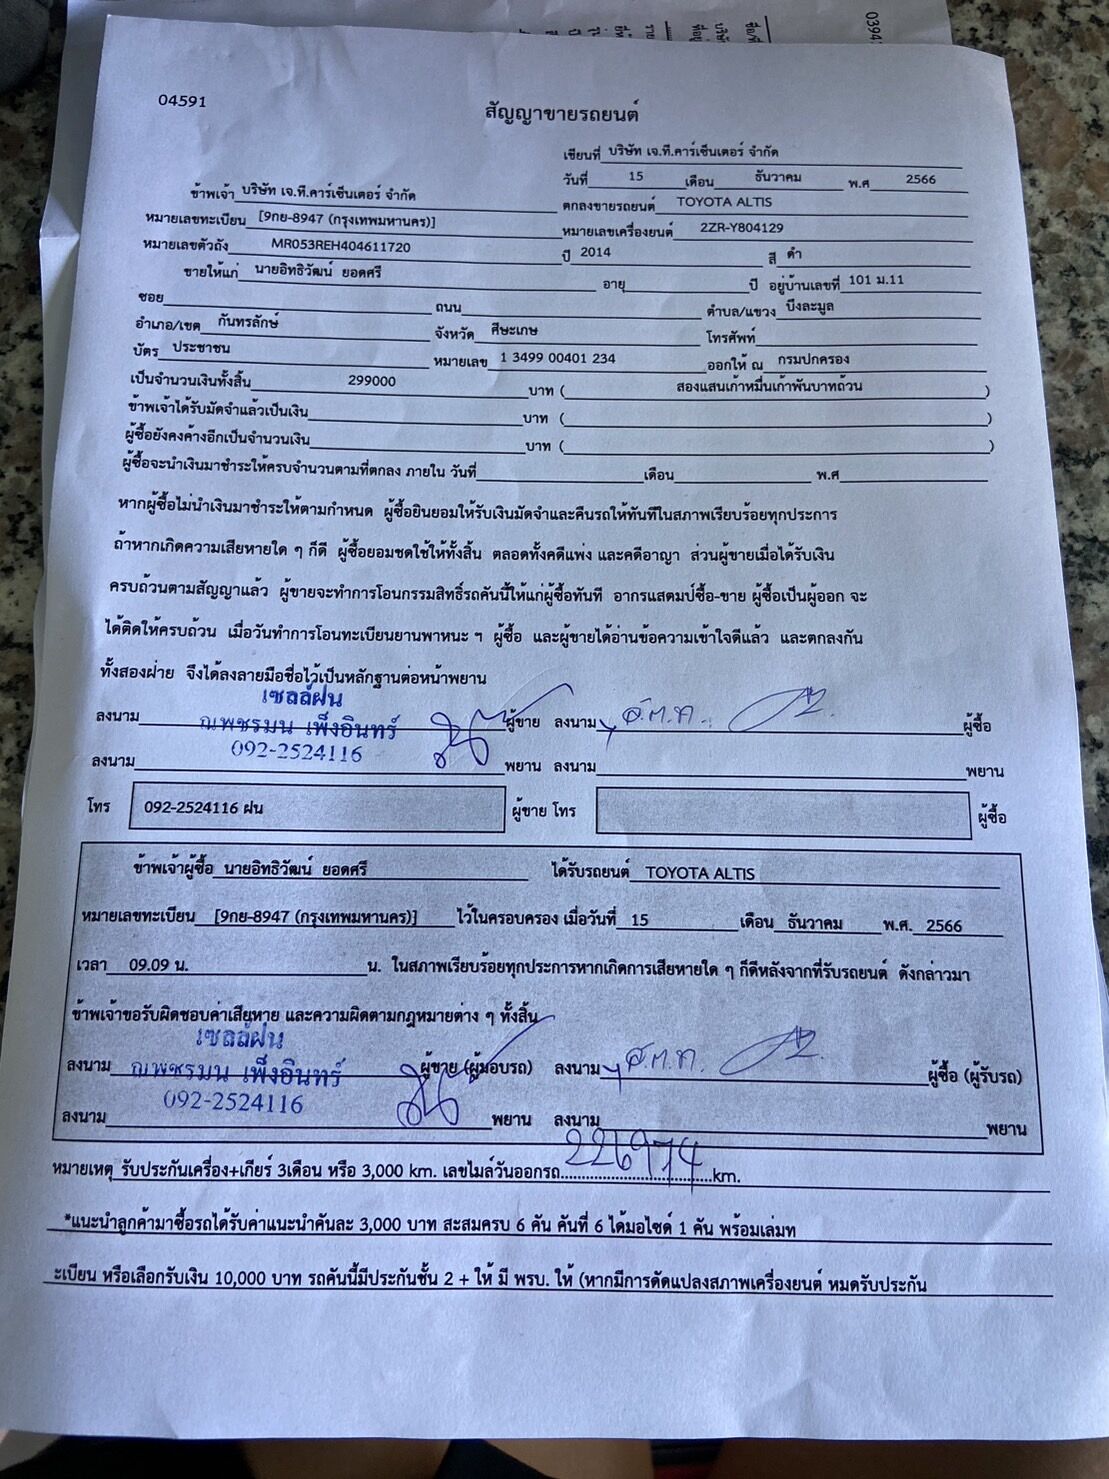 04591
สัญญาขายรถยนต์
เขียนที่ บริษัท เจ.ที.คาร์เซ็นเตอร์ จำกัด
วันที่ 15 เดือน ธันวาคม พ.ศ 2566
ข้าพเจ้า บริษัท เจ.ที.คาร์เซ็นเตอร์ จำกัด ตกลงขายรถยนต์ TOYOTA ALTIS
หมายเลขทะเบียน [9กย-8947 (กรุงเทพมหานคร)] หมายเลขเครื่องยนต์ 2ZR-Y804129
หมายเลขตัวถัง MR053REH404611720 ปี 2014 สี ดำ
ขายให้แก่ นายอิทธิวัฒน์ ยอดศรี อายุ ปี อยู่บ้านเลขที่ 101 ม.11
ซอย ถนน ตำบล/แขวง บึงมะลู
อำเภอ/เขต กันทรลักษ์ จังหวัด ศีษะเกษ โทรศัพท์
บัตร ประชาชน หมายเลข 1 3499 00401 234 ออกให้ ณ กรมปกครอง
เป็นจำนวนเงินทั้งสิ้น 299000 บาท ( สองแสนเก้าหมื่นเก้าพันบาทถ้วน )
ข้าพเจ้าได้รับมัดจำแล้วเป็นเงิน บาท ( )
ผู้ซื้อยังคงค้างอีกเป็นจำนวนเงิน บาท ( )
ผู้ซื้อจะนำเงินมาชำระให้ครบจำนวนตามที่ตกลง ภายใน วันที่ เดือน พ.ศ
หากผู้ซื้อไม่นำเงินมาชำระให้ตามกำหนด ผู้ซื้อยินยอมให้รับเงินมัดจำและคืนรถให้ทันทีในสภาพเรียบร้อยทุกประการ
ถ้าหากเกิดความเสียหายใด ๆ ก็ดี ผู้ซื้อยอมชดใช้ให้ทั้งสิ้น ตลอดทั้งคดีแพ่ง และคดีอาญา ส่วนผู้ขายเมื่อได้รับเงิน
ครบถ้วนตามสัญญาแล้ว ผู้ขายจะทำการโอนกรรมสิทธิ์รถคันนี้ให้แก่ผู้ซื้อทันที อากรแสตมป์ซื้อ-ขาย ผู้ซื้อเป็นผู้ออก จะ
ได้ติดให้ครบถ้วน เมื่อวันทำการโอนทะเบียนยานพาหนะ ฯ ผู้ซื้อ และผู้ขายได้อ่านข้อความเข้าใจดีแล้ว และตกลงกัน
ทั้งสองฝ่าย จึงได้ลงลายมือชื่อไว้เป็นหลักฐานต่อหน้าพยาน
เซลล์ฝน
ลงนาม ณพชรมน เพ็งอินทร์ ผู้ขาย ลงนาม ส.ต.ต. ผู้ซื้อ
092-2524116
ลงนาม พยาน ลงนาม พยาน
โทร 092-2524116 ฝน ผู้ขาย โทร ผู้ซื้อ
ข้าพเจ้าผู้ซื้อ นายอิทธิวัฒน์ ยอดศรี ได้รับรถยนต์ TOYOTA ALTIS
หมายเลขทะเบียน [9กย-8947 (กรุงเทพมหานคร)] ไว้ในครอบครอง เมื่อวันที่ 15 เดือน ธันวาคม พ.ศ. 2566
เวลา 09.09 น. น. ในสภาพเรียบร้อยทุกประการหากเกิดการเสียหายใด ๆ ก็ดีหลังจากที่รับรถยนต์ ดังกล่าวมา
ข้าพเจ้าขอรับผิดชอบค่าเสียหาย และความผิดตามกฎหมายต่าง ๆ ทั้งสิ้น
เซลล์ฝน
ลงนาม ณพชรมน เพ็งอินทร์ ผู้ขาย (ผู้มอบรถ) ลงนาม ส.ต.ต. ผู้ซื้อ (ผู้รับรถ)
092-2524116
ลงนาม พยาน ลงนาม พยาน
หมายเหตุ รับประกันเครื่อง+เกียร์ 3เดือน หรือ 3,000 km. เลขไมล์วันออกรถ 226974 km.
*แนะนำลูกค้ามาซื้อรถได้รับค่าแนะนำคันละ 3,000 บาท สะสมครบ 6 คัน คันที่ 6 ได้มอไซด์ 1 คัน พร้อมเล่มท
ะเบียน หรือเลือกรับเงิน 10,000 บาท รถคันนี้มีประกันชั้น 2 + ให้ มี พรบ. ให้ (หากมีการดัดแปลงสภาพเครื่องยนต์ หมดรับประกัน